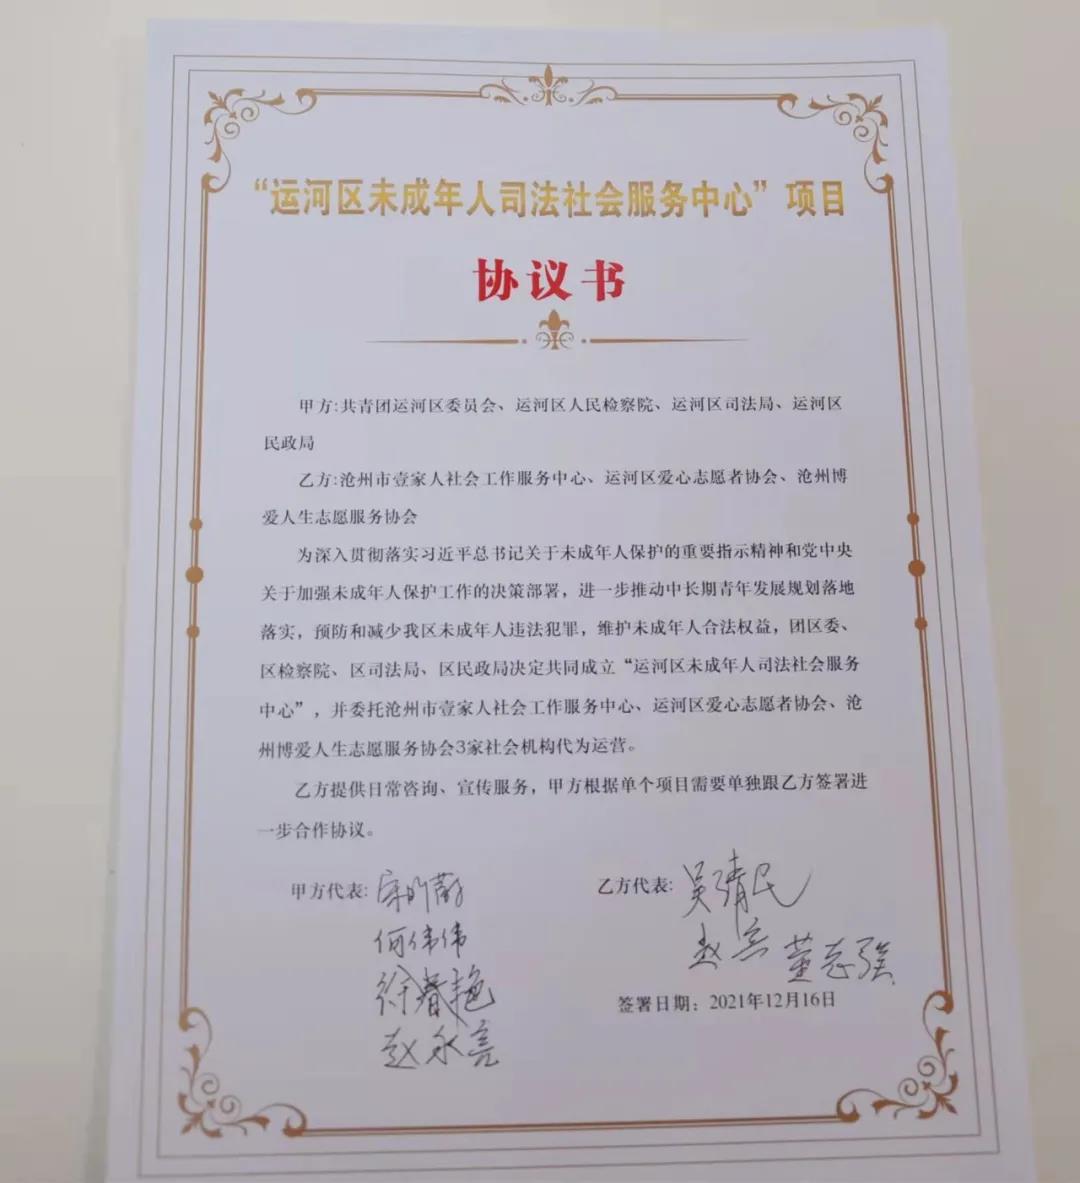 “运河区未成年人司法社会服务中心”项目
协议书
甲方:共青团运河区委员会、运河区人民检察院、运河区司法局、运河区
民政局
乙方:沧州市壹家人社会工作服务中心、运河区爱心志愿者协会、沧州博
爱人生志愿服务协会
为深入贯彻落实习近平总书记关于未成年人保护的重要指示精神和党中央
关于加强未成年人保护工作的决策部署，进一步推动中长期青年发展规划落地
落实，预防和减少我区未成年人违法犯罪，维护未成年人合法权益，团区委、
区检察院、区司法局、区民政局决定共同成立“运河区未成年人司法社会服务
中心”，并委托沧州市壹家人社会工作服务中心、运河区爱心志愿者协会、沧
州博爱人生志愿服务协会3家社会机构代为运营。
乙方提供日常咨询、宣传服务，甲方根据单个项目需要单独跟乙方签署进
一步合作协议。
甲方代表:
何伟伟
徐春艳
赵永亮
乙方代表: 吴清民
赵兵 董志强
签署日期：2021年12月16日